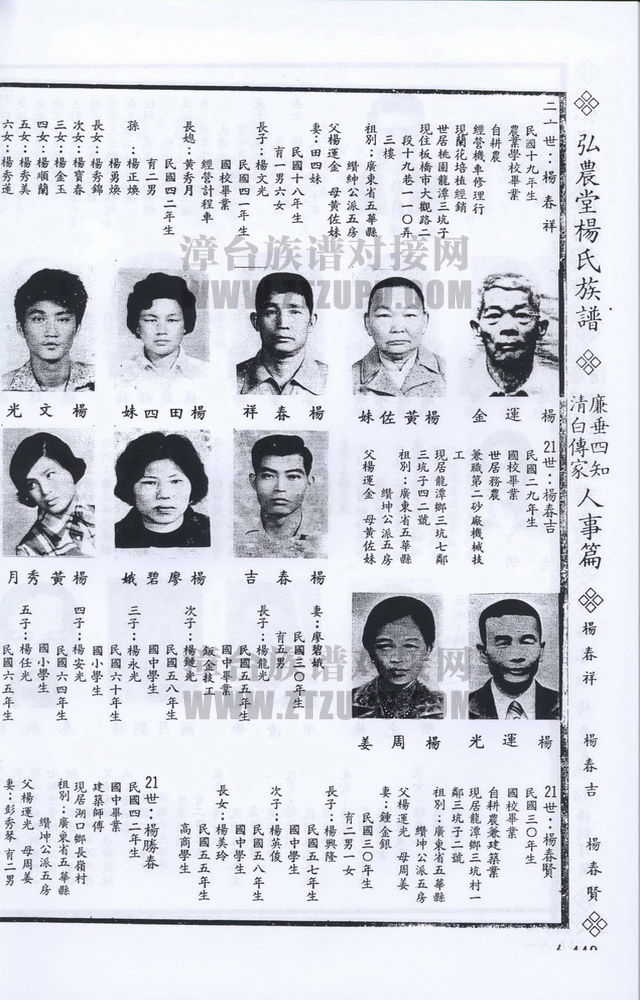 弘農堂楊氏族譜
廉垂四知
清白傳家
人事篇
楊春祥
楊春吉
楊春賢
二一世：楊春祥
民國十九年生
農業學校畢業
自耕農
經營機車修理行
現蘭花培植經銷
世居桃園龍潭三坑子
現住板橋市大觀路二
段十九巷一一〇弄
三樓
祖別：廣東省五華縣
纘紳公派五房
父楊運金 母黃佐妹
妻：田四妹
民國十八年生
育一男六女
長子：楊文光
民國四一年生
國校畢業
經營計程車
長媳：黃秀月
民國四二年生
育二男
孫：楊正煥
楊勇煥
長女：楊秀錦
次女：楊寶春
三女：楊金玉
四女：楊順蘭
五女：楊秀美
六女：楊秀蓮
楊運金
楊黃佐妹
楊春祥
楊田四妹
楊文光
21世：楊春吉
民國二九年生
國校畢業
世居務農
兼職第二砂廠機械技
工
現居龍潭鄉三坑七鄰
三坑子四二號
祖別：廣東省五華縣
纘坤公派五房
父楊運金 母黃佐妹
楊春吉
楊廖碧娥
楊黃秀月
妻：廖碧娥
民國三〇年生
育五男
長子：楊龍光
民國五五年生
國中畢業
鈑金技工
次子：楊鍾光
民國五八年生
國中學生
三子：楊永光
民國六十年生
國小學生
四子：楊安光
民國六四年生
國小學生
五子：楊任光
民國六五年生
楊運光
楊周姜
21世：楊春賢
民國三〇年生
國校畢業
自耕農兼建築業
現居龍潭鄉三坑村一
鄰三坑子二號
祖別：廣東省五華縣
纘坤公派五房
父楊運光 母周姜
妻：鍾金銀
民國三〇年生
育二男一女
長子：楊興隆
民國五七年生
國中學生
次子：楊英俊
民國五八年生
國中學生
長女：楊美玲
民國五五年生
高商學生
21世：楊勝春
民國四二年生
國中畢業
建築師傅
現居湖口鄉長嶺村
祖別：廣東省五華縣
纘坤公派五房
父楊運光 母周姜
妻：彭秀琴 育二男
漳台族谱对接网
WWW.ZTZUPU.COM
漳台族谱对接网
WWW.ZTZUPU.COM